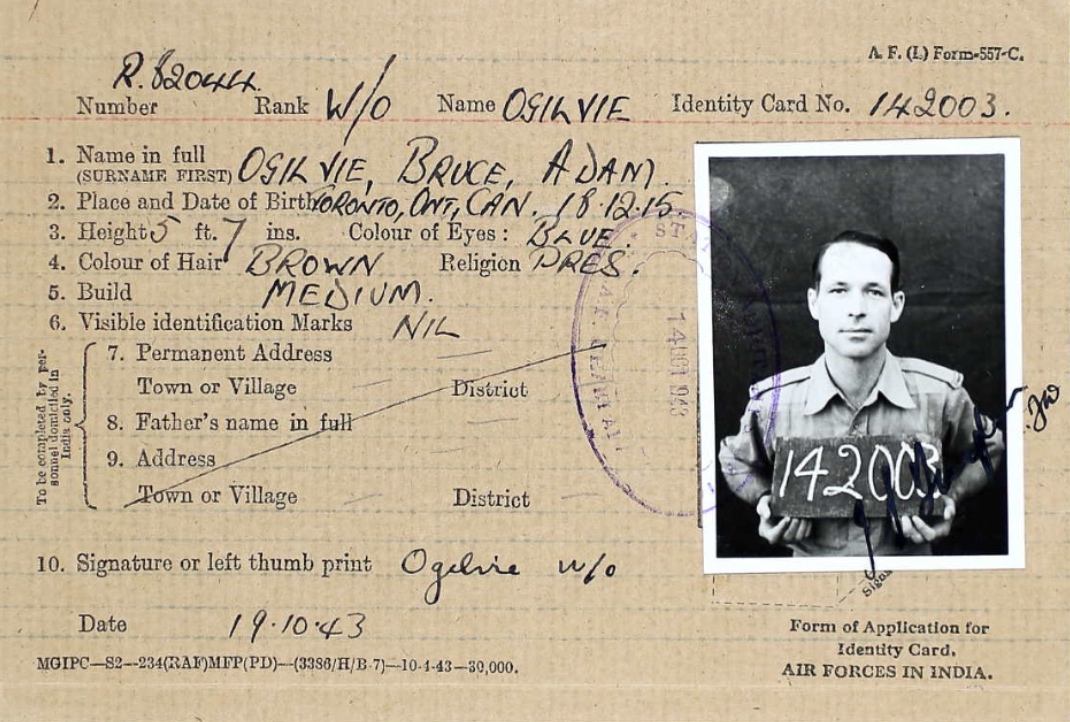 A. F. (I.) Form-557-C.
R.82044.
Number Rank W/O Name OGILVIE Identity Card No. 142003.
1. Name in full OGILVIE, BRUCE, ADAM.
(SURNAME FIRST)
2. Place and Date of Birth TORONTO, ONT, CAN. 18.12.15.
3. Height 5 ft. 7 ins. Colour of Eyes : BLUE.
4. Colour of Hair BROWN Religion PRES.
5. Build MEDIUM.
6. Visible identification Marks NIL
To be completed by per-
sonnel domiciled in
India only.
7. Permanent Address
Town or Village District
8. Father's name in full
9. Address
Town or Village District
142003
10. Signature or left thumb print Ogilvie w/o
Date 19.10.43
MGIPC—S2—234(RAF)MFP(PD)—(3386/H/B-7)—10-4-43—30,000.
Form of Application for
Identity Card,
AIR FORCES IN INDIA.